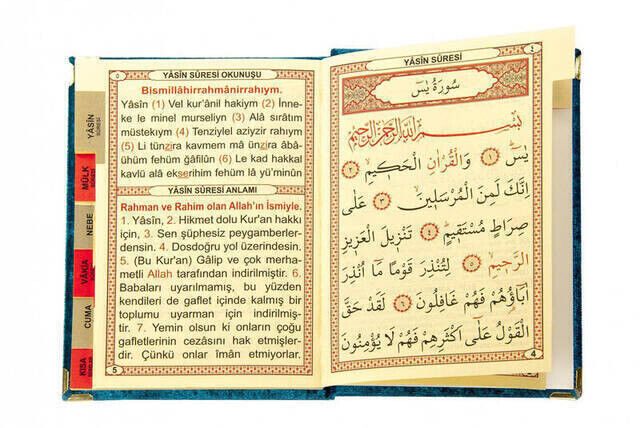 ٥ YÂSÎN SÛRESİ OKUNUŞU
Bismillâhirrahmânirrahıym.
Yâsîn (1) Vel kur'ânil hakiym (2) İnne-
ke le minel murseliyn (3) Alâ sırâtım
müstekıym (4) Tenziylel aziyzir rahıym
(5) Li tünzira kavmem mâ ünzira âbâ-
ühüm fehüm ğâfilûn (6) Le kad hakkal
kavlü alâ ekserihim fehüm lâ yü'minûn
YÂSÎN SÛRESİ ANLAMI
Rahman ve Rahim olan Allah'ın İsmiyle.
1. Yâsîn, 2. Hikmet dolu Kur'an hakkı
için, 3. Sen şüphesiz peygamberler-
densin. 4. Dosdoğru yol üzerindesin.
5. (Bu Kur'an) Gâlip ve çok merha-
metli Allah tarafından indirilmiştir. 6.
Babaları uyarılmamış, bu yüzden
kendileri de gaflet içinde kalmış bir
toplumu uyarman için indirilmiş-
tir. 7. Yemin olsun ki onların çoğu
gafletlerinin cezasını hak etmişler-
dir. Çünkü onlar îmân etmiyorlar.
5
YÂSÎN
SÛRESİ
MÜLK
NEBE
VÂKIA
CUMA
KISA
YÂSÎN SÛRESİ ٤
سُورَةُ يٰسٓ
بِسْمِ اللّٰهِ الرَّحْمٰنِ الرَّحِيمِ
يٰسٓ ﴿١﴾ وَالْقُرْاٰنِ الْحَكِيمِ ﴿٢﴾
اِنَّكَ لَمِنَ الْمُرْسَلِينَ ﴿٣﴾ عَلٰى
صِرَاطٍ مُسْتَقِيمٍ ﴿٤﴾ تَنْزِيلَ الْعَزِيزِ
الرَّحِيمِ ﴿٥﴾ لِتُنْذِرَ قَوْمًا مَٓا اُنْذِرَ
اٰبَٓاؤُهُمْ فَهُمْ غَافِلُونَ ﴿٦﴾ لَقَدْ حَقَّ
الْقَوْلُ عَلٰٓى اَكْثَرِهِمْ فَهُمْ لَا يُؤْمِنُونَ
4